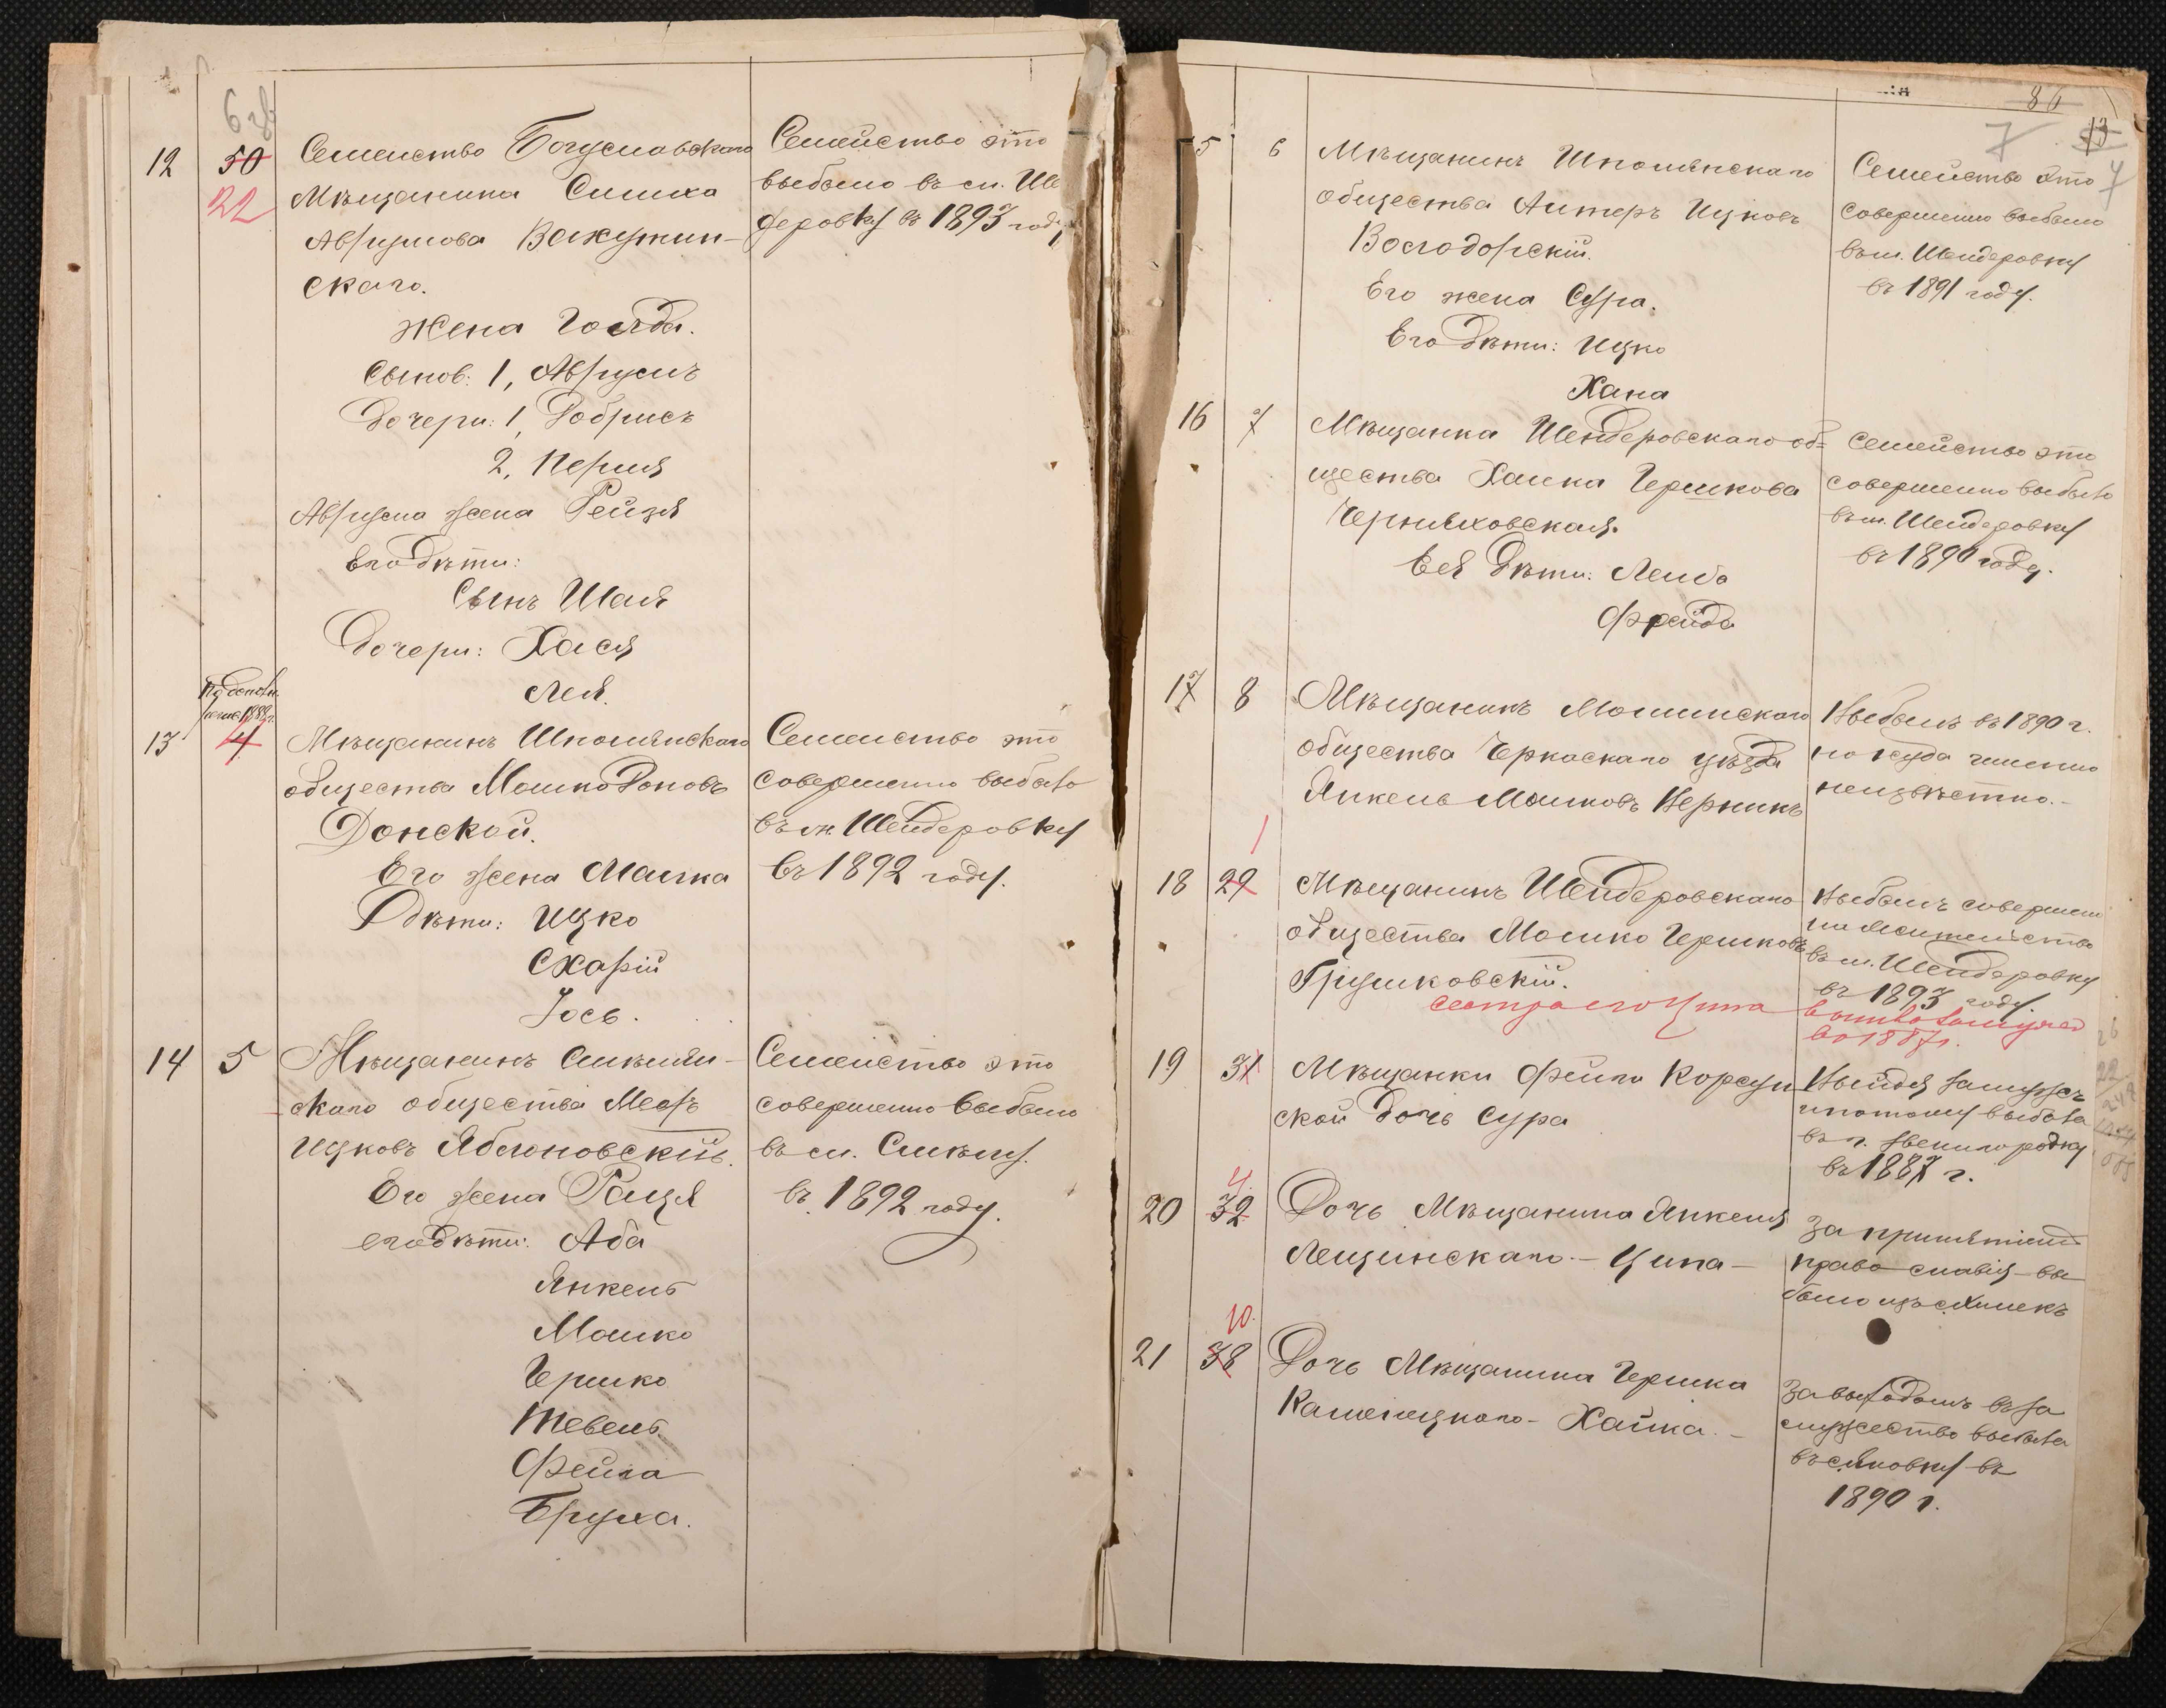 6 об
12
50
22
Семейство Богуславскаго
Мѣщанина Симха
Аврумова Вахутин-
скаго.
Жена Голда.
Сынов: 1, Аврумъ
Дочери: 1, Добрисъ
2, Перля
Аврума жена Рейзя
Его дѣти:
Сынъ Шая
Дочери: Хася
Лея.
Семейство это
выбыло въ м. Ше
деровку въ 1893 году
13
4
Мѣщанинъ Шполянскаго
общества Мошко
Донской.
Его жена Малка
Дѣти: Ицко
Схарій
Іось.
Семейство это
совершенно выбыло
въ м. Шендеровку
въ 1892 году.
14
5
Мѣщанинъ Смѣлян-
скаго общества Мееръ
Ицковъ Яблоновскій.
Его жена Рейзя
его дѣти: Аба
Янкель
Мошко
Гершко
Тевель
Фейга
Бруха.
Семейство это
совершенно выбыло
въ м. Смѣлу.
въ 1892 году.
86
13
7
7
15
6
Мѣщанинъ Шполянскаго
общества Лейзеръ Ицковъ
Его жена Сура.
Его дѣти: Ицко
Хана
Семейство это
совершенно выбыло
въ м. Шендеровку
въ 1891 году.
16
7
Мѣщанка Шендеровскаго об=
щества Хайка Гершкова
Черняховская.
Ея дѣти: Лейба
Фрейда
Семейство это
совершенно выбыло
въ м. Шендеровку
въ 1890 году.
17
8
Мѣщанинъ Мошинскаго
общества Черкаскаго уѣзда
Янкель Мошковъ
Выбылъ въ 1890 г.
но куда именно
неизвѣстно.-
18
29
1
Мѣщанинъ Шендеровскаго
общества Мошко Гершковъ
Грушковскій.
сестра его Ципа
Выбылъ совершен
но на жительство
въ м. Шендеровку
въ 1893 году.
вышла замужъ
въ 1887 г.
19
31
Мѣщанки Фейги Корсун
ской дочь Сура
Выйдя замужъ
и потому выбыла
въ г. Звенигородку
въ 1887 г.
20
32
4.
Дочь Мѣщанина Янкеля
Лещинскаго - Ципа -
За принятіемъ
православія - вы
было изъ с. Химекъ
21
38
10.
Дочь Мѣщанина Гершка
Каменецкаго - Хайка. -
За выходомъ въ за
мужество выбыла
въ с. Яновку въ
1890 г.